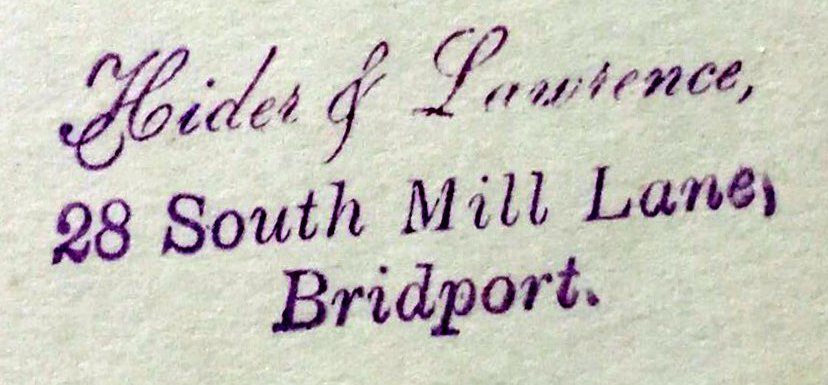 Hider & Lawrence,
28 South Mill Lane,
Bridport.